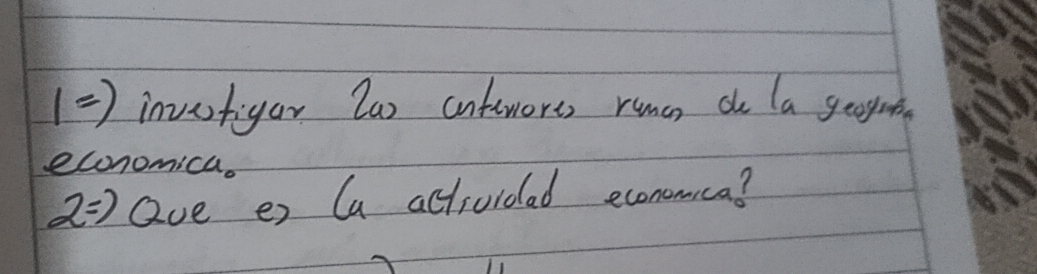 1=) investigar las anteriores ramas de la geografia
economica.
2=) Que es la actividad economica?